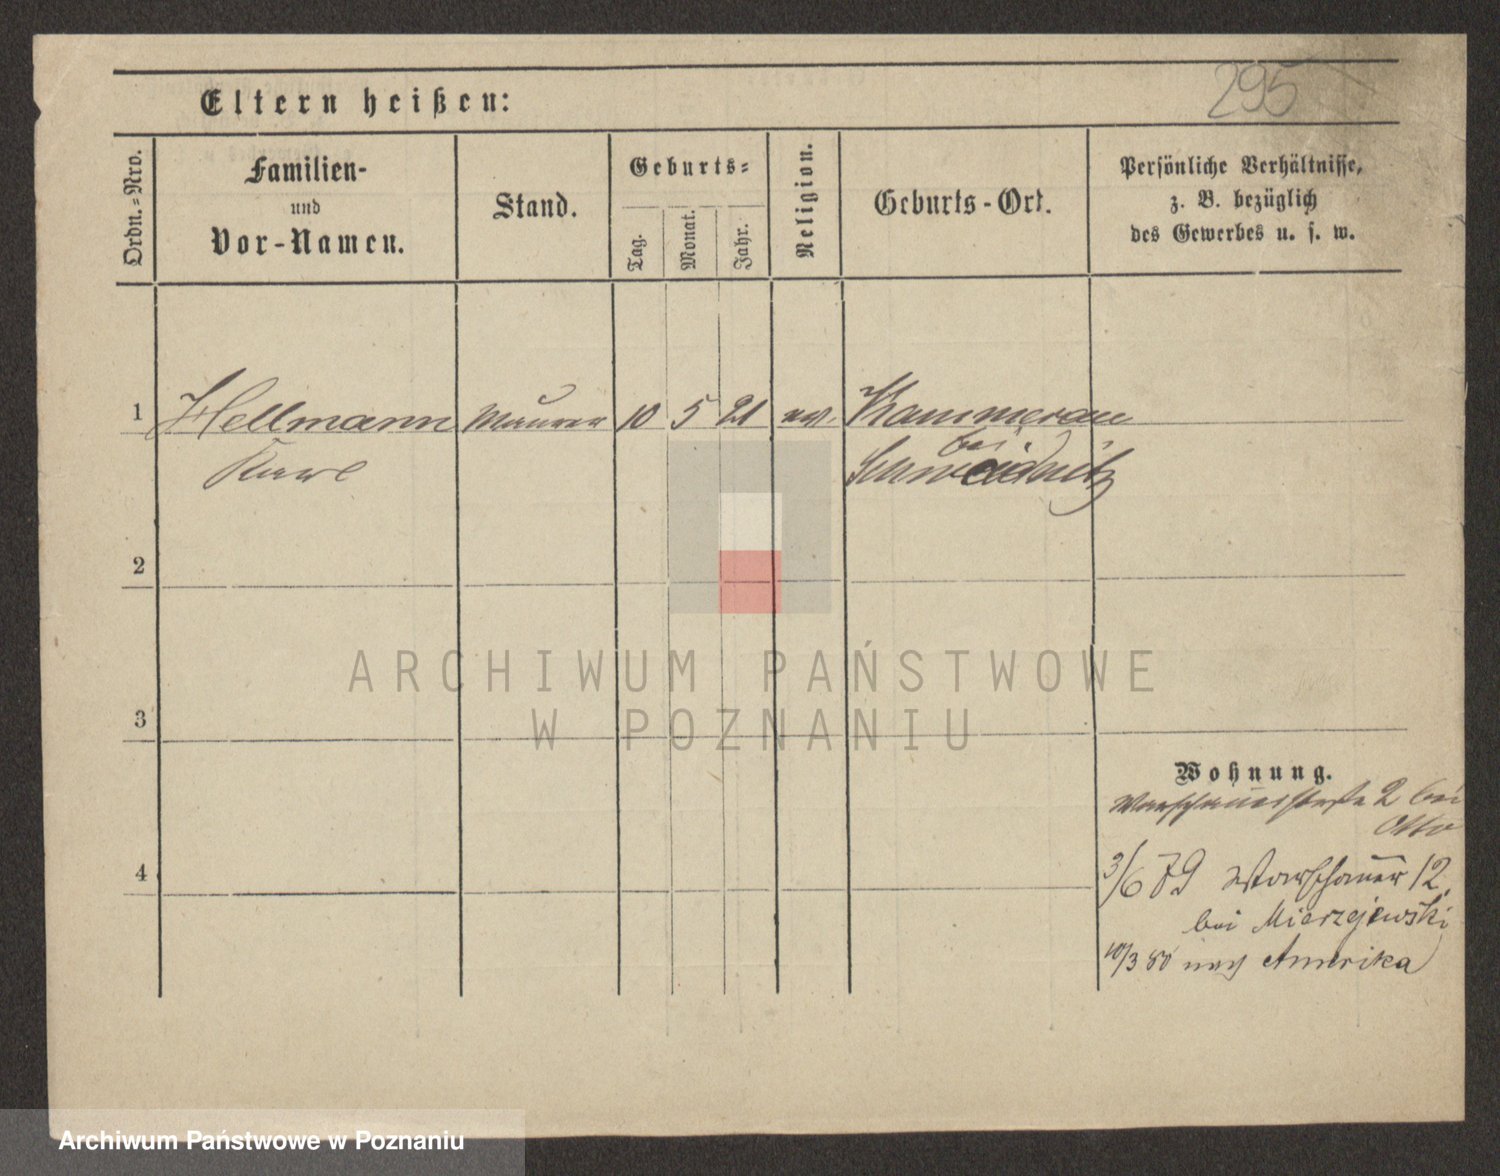 295
Eltern heißen:
Ordn.-Nro.
Familien-
und
Vor-Namen.
Stand.
Geburts-
Tag.
Monat.
Jahr.
Religion.
Geburts-Ort.
Persönliche Verhältnisse,
z. B. bezüglich
des Gewerbes u. s. w.
1 Hellmann Maurer 10 5 21 ev. Kammerau
bei
Karl Schweidnitz
2
3
ARCHIWUM PAŃSTWOWE
W POZNANIU
Wohnung.
Warschauerstraße 2 bei
Otto
4
3/6 79 Warschauer 12
bei Mierzejewski
10/3 80 nach Amerika
Archiwum Państwowe w Poznaniu